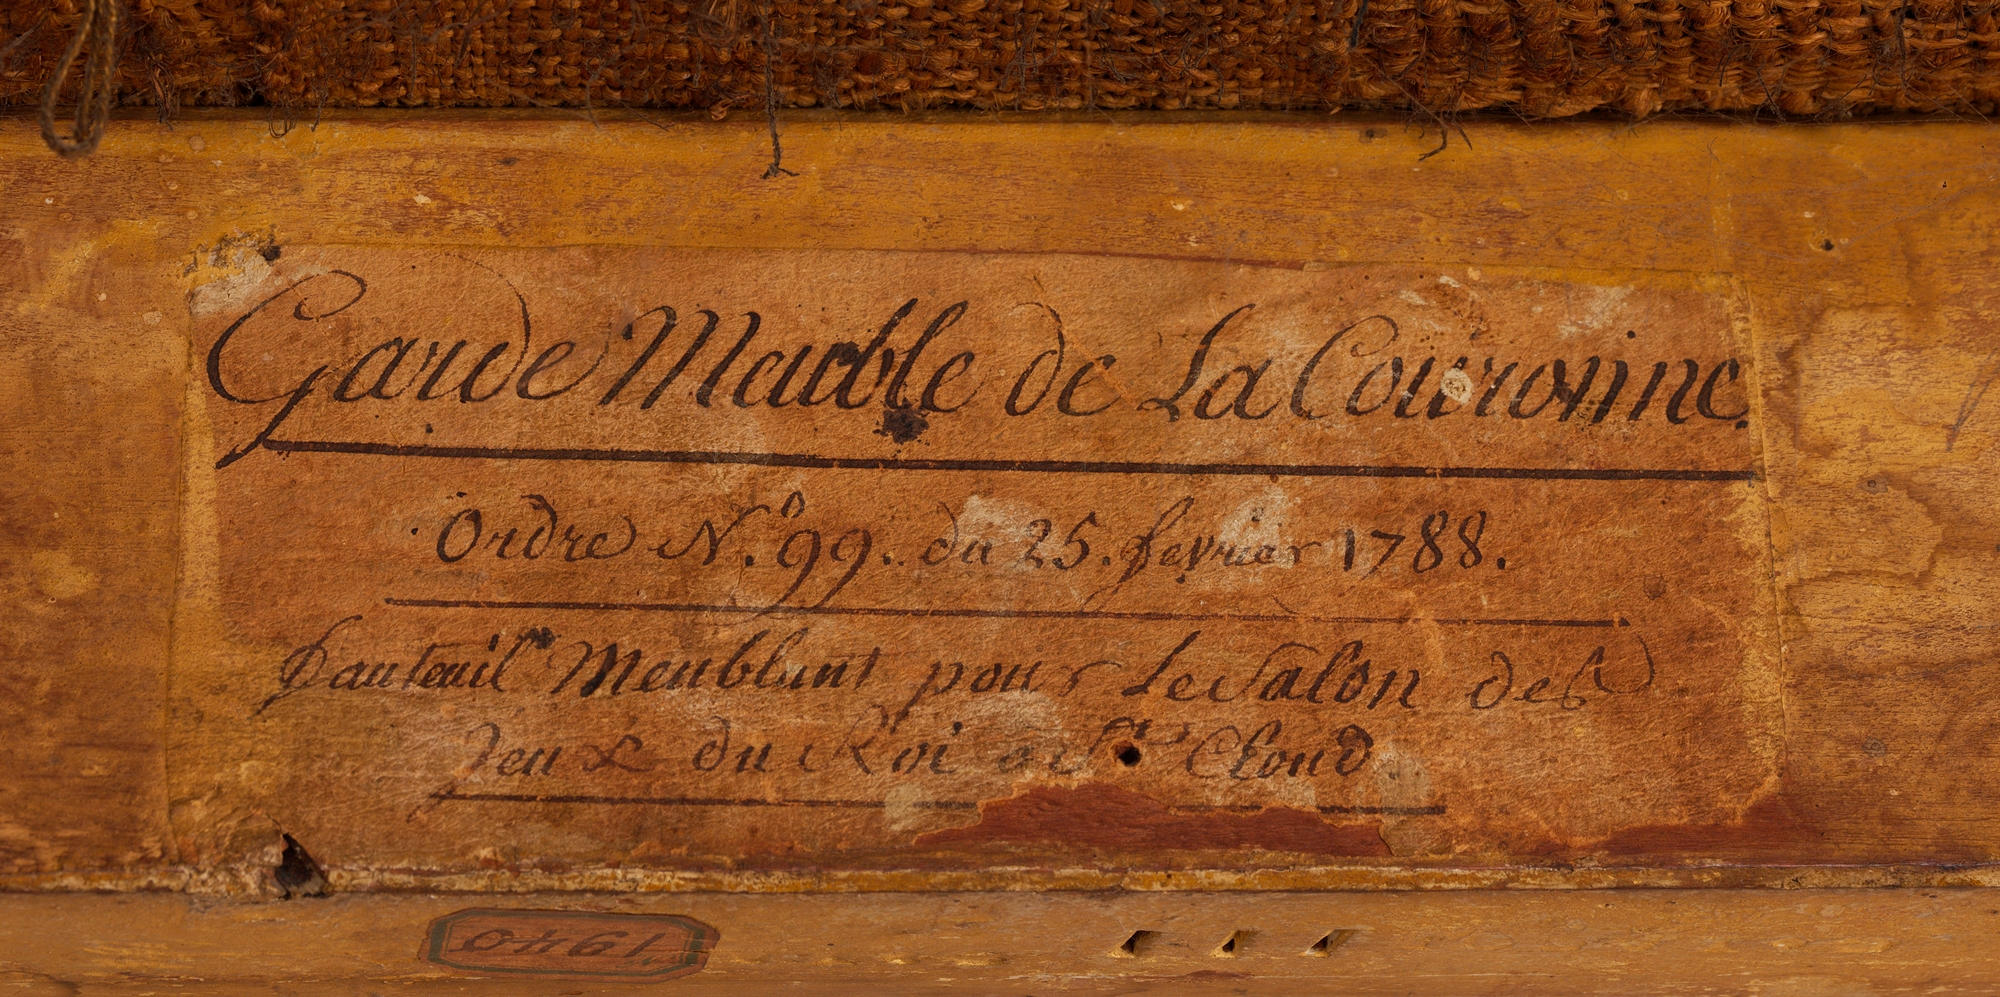 Garde Meuble de La Couronne.
Ordre N.º 99. du 25. fevrier 1788.
fauteuil Meublant pour Le Salon des
Jeux du Roi a St. Cloud.